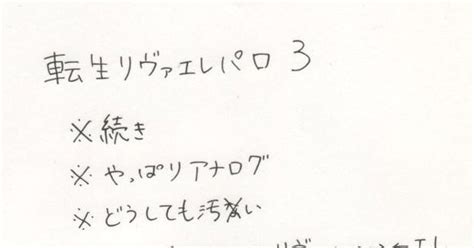 転生リヴァエレパロ 3
※続き
※やっぱりアナログ
※どうしても汚い